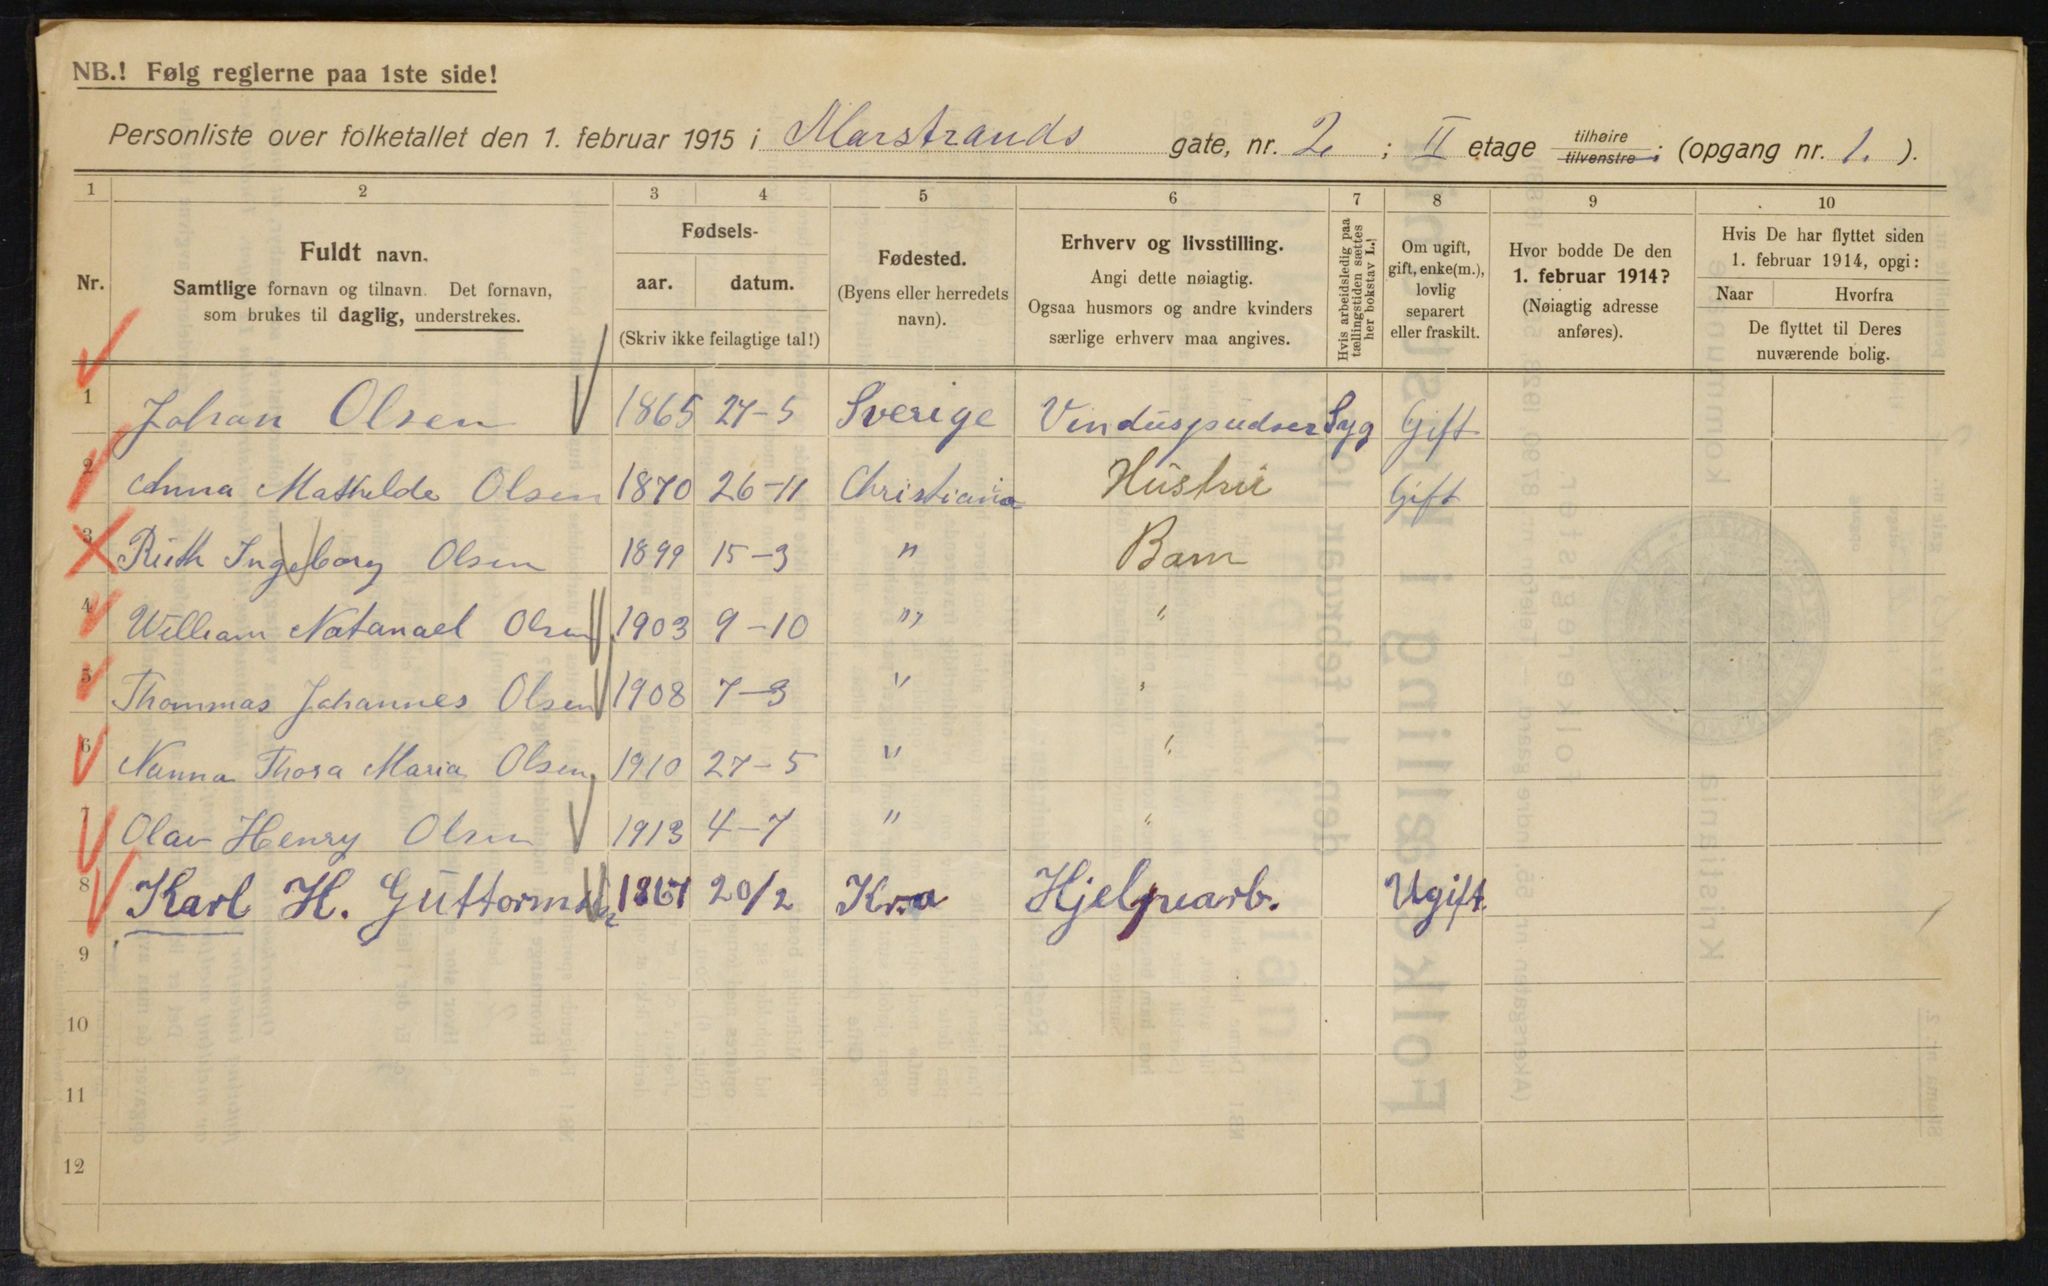 NB.! Følg reglerne paa 1ste side!
Personliste over folketallet den 1. februar 1915 i Marstrands gate, nr. 2 ; II etage tilhøire tilvenstre ; (opgang nr. 1. ).
1 2 3 4 5 6 7 8 9 10
Nr.
Fuldt navn.
Samtlige fornavn og tilnavn. Det fornavn,
som brukes til daglig, understrekes.
Fødsels-
aar. datum.
(Skriv ikke feilagtige tal!)
Fødested.
(Byens eller herredets
navn).
Erhverv og livsstilling.
Angi dette nøiagtig.
Ogsaa husmors og andre kvinders
særlige erhverv maa angives.
Hvis arbeidsledig paa
tællingstiden sættes
her bokstav L.!
Om ugift,
gift, enke(m.),
lovlig
separert
eller fraskilt.
Hvor bodde De den
1. februar 1914?
(Nøiagtig adresse
anføres).
Hvis De har flyttet siden
1. februar 1914, opgi:
Naar Hvorfra
De flyttet til Deres
nuværende bolig.
1 Johan Olsen 1865 27-5 Sverige Vinduspudser Syg Gift
2 Anna Mathilde Olsen 1870 26-11 Christiania Hustru Gift
3 Ruth Ingeborg Olsen 1899 15-3 " Barn
4 William Natanael Olsen 1903 9-10 " "
5 Thommas Johannes Olsen 1908 7-3 " "
6 Nanna Thora Maria Olsen 1910 27-5 " "
7 Olav Henry Olsen 1913 4-7 " "
8 Karl H. Guttormsen 20/2 Kr.a Hjelpearb. Ugift.
9
10
11
12